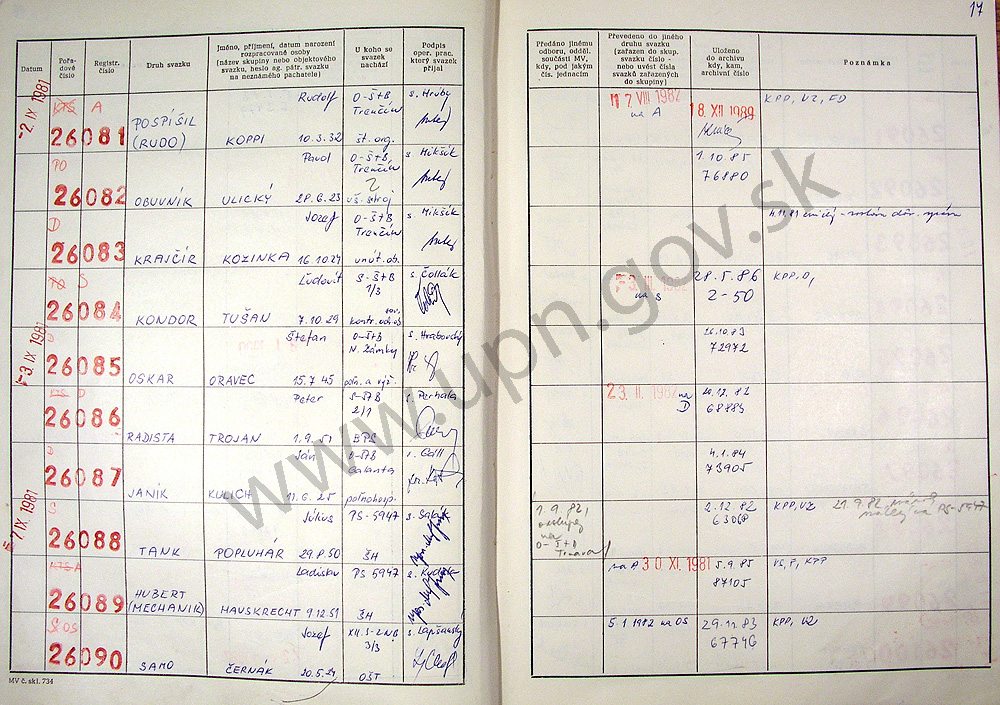 17
Datum
Pořadové číslo
Registr. číslo
Druh svazku
Jméno, příjmení, datum narození rozpracované osoby (název skupiny nebo objektového svazku, heslo ag. pátr. svazku na neznámého pachatele)
U koho se svazek nachází
Podpis oper. prac. který svazek přijal
Předáno jinému odboru, odděl. součásti MV, kdy, pod jakým čís. jednacím
Převedeno do jiného druhu svazku (zařazen do skup. svazku číslo - nebo uvést čísla svazků zařazených do skupiny)
Uloženo do archivu kdy, kam, archivní číslo
Poznámka
-2. IX. 1981
KTS A
26081
POSPÍŠIL (RUDO)
Rudolf
KOPPI 10.3.32
O-ŠtB Trenčín
št. org.
s. Hruby
17 VIII 1982
na A
18. XII 1989
KPP, VZ, ED
PO
26082
OBUVNÍK
Pavol
ULICKÝ 28.6.23
O-ŠtB, Trenčín
s. Mikšík
1.10.85
76880
D
26083
KRAJČÍR
Jozef
KOZINKA 16.10.24
O-ŠtB Trenčín
vnút. ob.
s. Mikšík
S
26084
KONDOR
Ľudovít
TUŠAN 7.10.29
S-ŠtB
1/3
s. Čollák
-3. III. 1982
na S
28.5.86
2-50
KPP, O,
-3. IX. 1981
D
26085
OSKAR
Štefan
ORAVEC 15.7.45
O-ŠtB
N. Zámky
s. Hrabovský
26.10.83
72972
KTS D
26086
RADISTA
Peter
TROJAN 1.9.51
S-ŠTB
2/1
s. Perhala
23. II. 1982 na D
20.12.82
68889
D
26087
JANÍK
Ján
KULICH 11.6.25
O-ŠTB
Galanta
poľnohosp.
s. Gall
4.1.84
73905
-7. IX. 1981
S
26088
TANK
Július
POPLUHÁR 29.8.50
PS-5947
ŠH
1.9.82,
na
O-ŠtB
Trnava
2.12.82
63068
KPP, VZ
KTS A
26089
HUBERT (MECHANIK)
Ladislav
HAUSKRECHT 9.12.51
PS 5947
ŠH
na A 30. XI. 1981
5.9.85
87105
VS, P, KPP
S OS
26090
SAMO
Jozef
ČERNÁK 20.5.24
XII. S-ZNB
3/3
OŠT
s. Lapšanský
5.1.1982 na OS
29.11.83
67746
KPP, VZ
MV č. skl. 734
www.upn.gov.sk